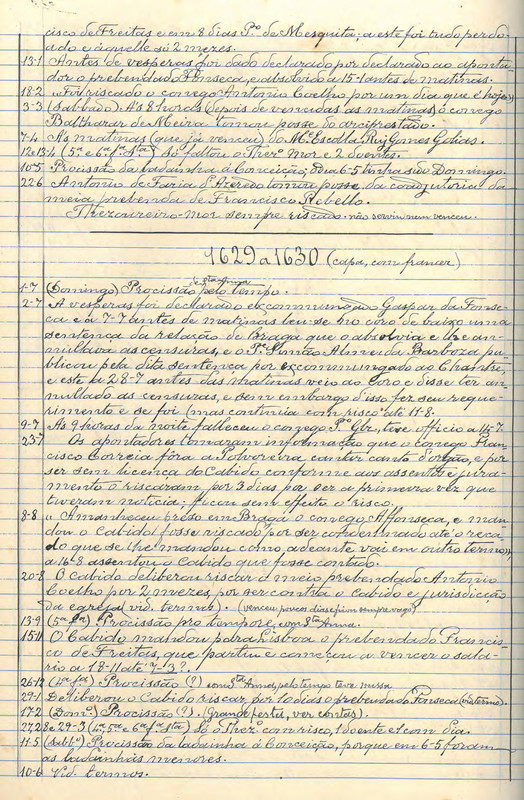 cisco de Freitas e em 8 dias Pº de Mesquita; a este foi tudo perdo-
ado e àquelle só 2 mezes.
13-1 Antes de vesperas foi dado declarado por declarado ao aponta-
dor o prebendado Fonseca, e absolvido a 15-1 antes de matinas.
18-2 "Foi riscado o conego Antonio Coelho por um dia que é hoje"
3-3 (Sabbado) Às 8 horas (depois de vencidas as matinas) o conego
Balthazar de Meira tomou posse do arciprestado.
7-4 As matinas (que já venceu) do Mᵉ Escolla, Ruy Gomes Golias.
12 e 13-4 (5ª e 6ª fª Stª) só faltou o Thezrº Mor e 2 doentes.
10-5 Procissão da ladainha à Conceição; 6-5 tinha sido Domingo.
22-6 Antonio de Faria d'Azeredo tomou posse da coadjutoria da
meia prebenda de Francisco Rebello.
Thezoureiro-mor sempre riscado não serviu nem venceu.
1629 a 1630 (capa, com francer)
de Stª Anna
1-7 (Domingo) Procissão pelo tempo.
2-7 A vesperas foi declarado excommungado Gaspar da Fonse-
ca e a 7-7 antes de matinas leu-se no coro de baixo uma
sentença da relação de Braga que o absolvia e lhe an-
nullava as censuras, e o Pᵉ Simão Alves da Barboza pu-
blicou pela dita sentença por excommungado ao Chantre,
e este a 28-7 antes das matinas veio ao Coro e disse ter an-
nullado as censuras, e sem embargo disso fez seu reque-
rimento e se foi (mas continua com risco até 11-8.
9-7 As 9 horas da noite falleceu o conego Pº Glz, teve officio a 14-7.
23-7 Os apontadores tomaram informação que o conego Fran-
cisco Correia fôra a Polvoreira cantar canto d'orgão, e por
ser sem licença do Cabido conforme aos assentos e jura-
mento o riscaram por 3 dias por ser a primeira vez que
tiveram noticia; ficou sem effeito o risco.
8-8 "Amanheceu preso em Braga o conego Affonseca, e man-
dou o Cabido fosse riscado por ser condemnado até o reca-
do que se lhe mandou como adeante vai em outro termo",
a 16-8 assentou o Cabido que fosse contado.
20-8 O Cabido deliberou riscar o meio prebendado Antonio
Coelho por 2 mezes, por ser contra o Cabido e jurisdicção
da egreja (vid. termos). (venceu poucos dias e fica em sempre vago?)
13-9 (5ª fª) Procissão pro tempore, com Stª Anna.
15-11 O Cabido mandou para Lisboa o prebendado Francis-
co de Freitas, que partiu e começou a vencer o sala-
rio a 18-11 até 7-3?.
26-12 (4ª fª) Procissão (?) com Stª Anna, pelo tempo teve missa
29-1 Deliberou o Cabido riscar por 10 dias o prebendado Fonseca (vid termo).
17-2 (Domº) Procissão (?). (Grande festa, ver contas).
27, 28 e 29-3 (4ª, 5ª e 6ª fª Stª) só o Thezrº com risco, 1 doente e 1 com dia.
11-5 (Sabbº) Procissão da ladainha à Conceição, porque em 6-5 foram
as ladainhas menores.
10-6 Vid. termos.